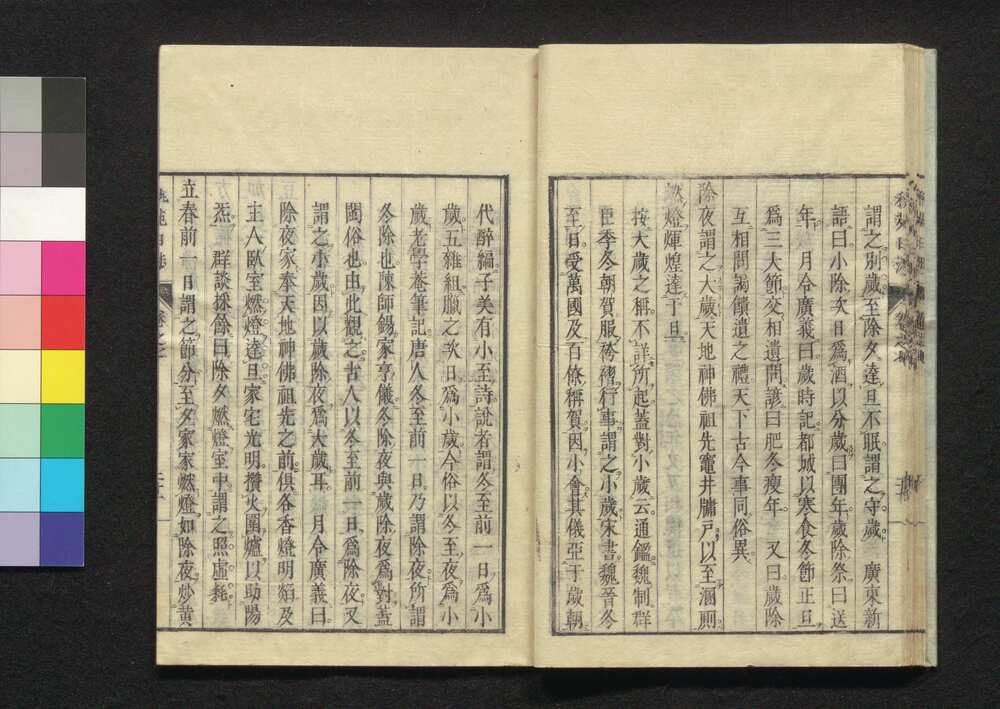 謂之別歲至除夕達旦不眠謂之守歲　廣東新
語曰小除次日爲酒以分歲曰團年歲除祭曰送
年　月令廣義曰歲時記都城以寒食冬節正旦
爲三大節交相遺問諺曰肥冬瘦年　又曰歲除
互相問謁饋遺之禮天下古今事同俗異
除夜謂之大歲天地神佛祖先竈井牖戶以至溷厠
燃燈輝煌達于旦
按大歲之稱不詳所起蓋對小歲云通鑑魏制群
臣季冬朝賀服袴褶行事謂之小歲宋書魏晉冬
至日受萬國及百僚稱賀因小會其儀亞于歲朝
代醉編子美有小至詩說者謂冬至前一日爲小
歲五雜組臘之次日爲小歲今俗以冬至夜爲小
歲老學菴筆記唐人冬至前一日乃謂除夜所謂
冬除也陳師錫家亨儀冬除夜與歲除夜爲對蓋
閩俗也由此觀之古人以冬至前一日爲除夜又
謂之小歲因以歲除夜爲大歲耳　月令廣義曰
除夜家奉天地神佛祖先之前俱各香燈明熖及
主人臥室燃燈達旦家宅光明攢火圍爐以助陽
炁　群談採餘曰除夕燃燈室中謂之照虛耗
立春前一日謂之節分至夕家家燃燈如除夜炒黃